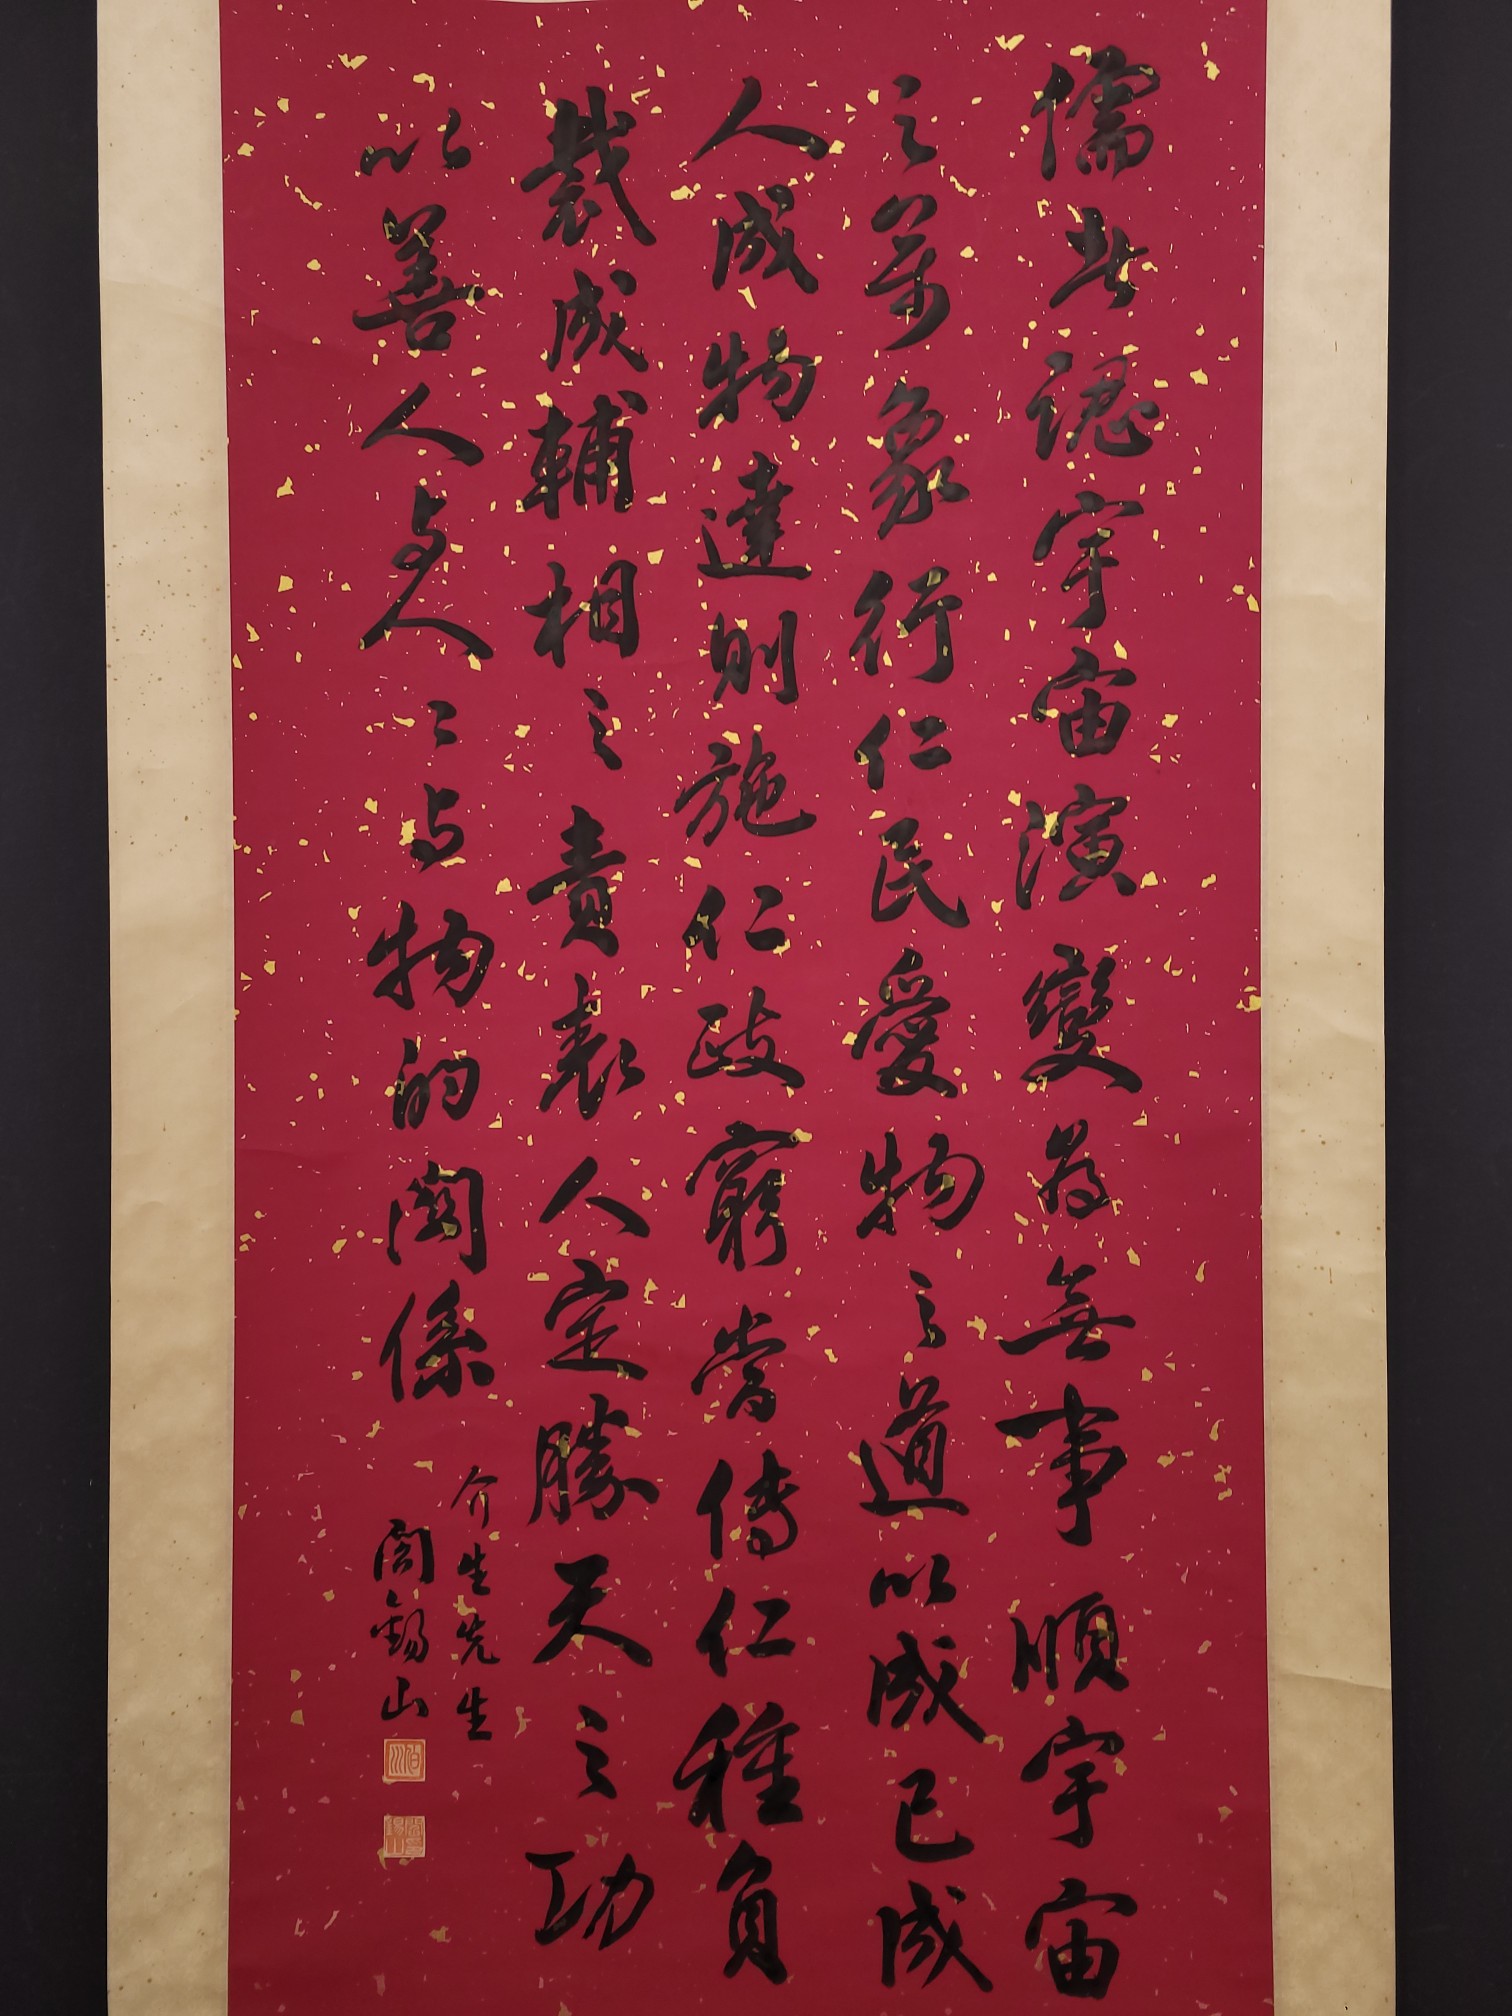 儒者認宇宙演變為無事順宇宙
之萬象行仁民愛物之道以成己成
人成物達則施仁政窮當傳仁種負
裁成輔相之責表人定勝天之功
以善人與人々與物的関係
介生先生
閻錫山